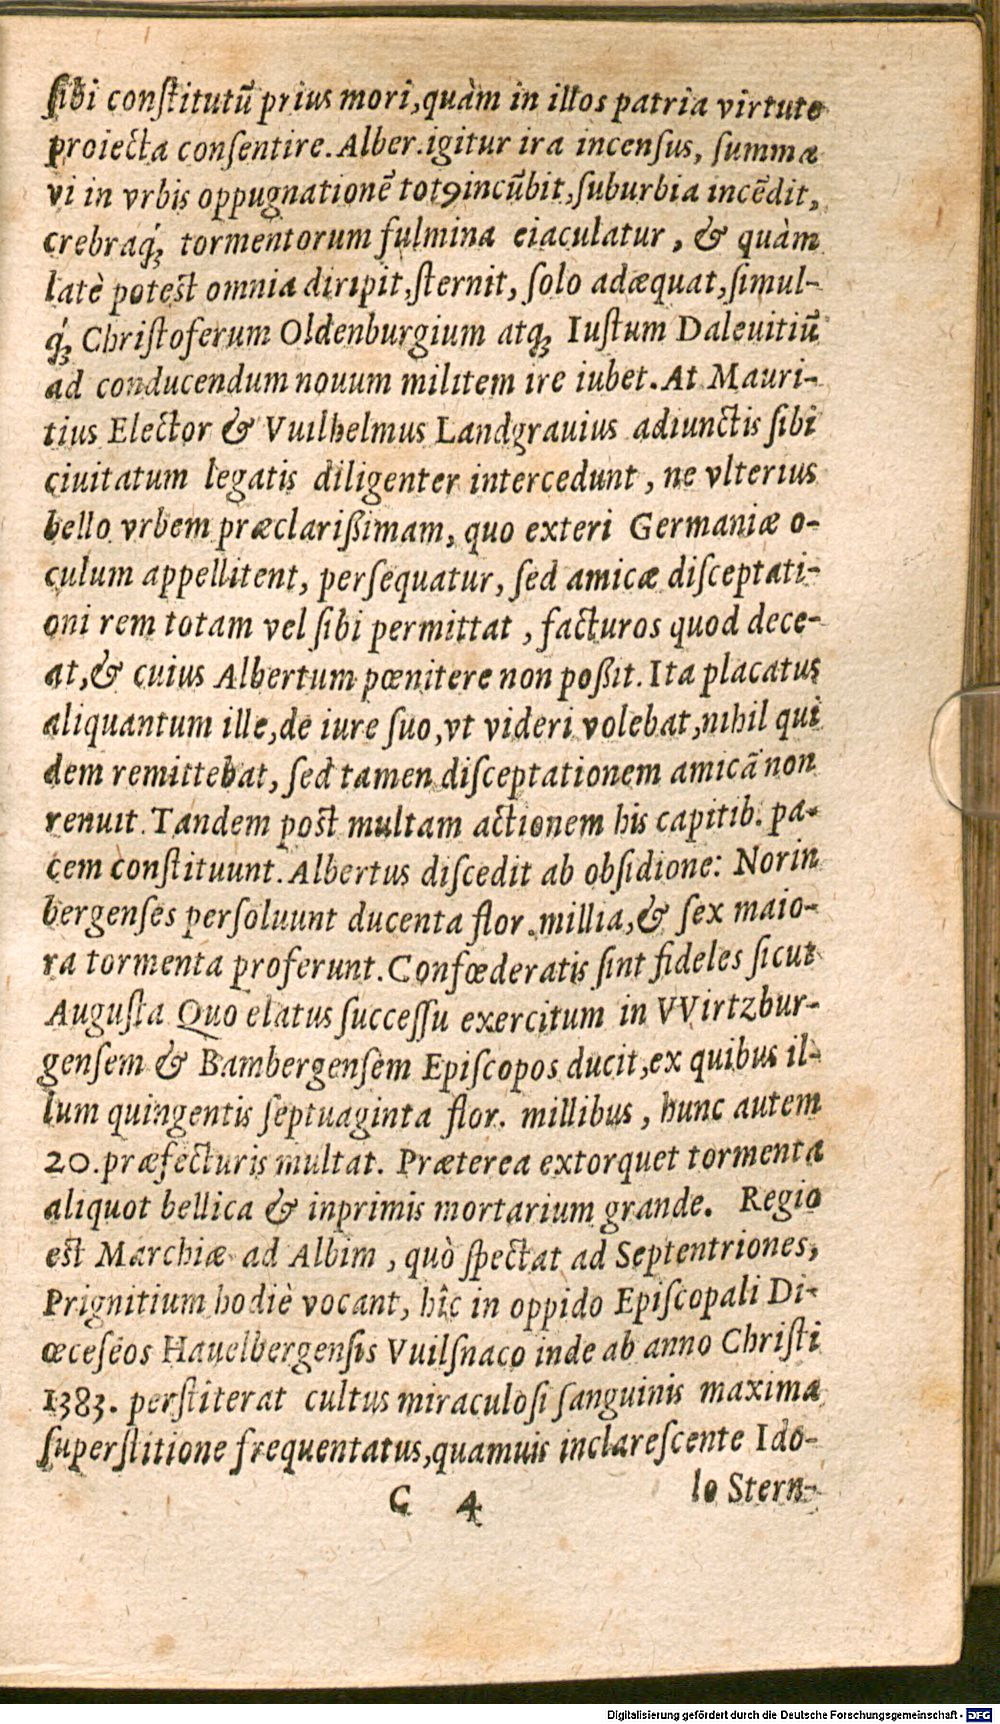 ſibi conſtitutū prius mori, quàm in illos patria virtute
proiecta conſentire. Alber. igitur ira incenſus, ſumma
vi in vrbis oppugnationē totꝰ incūbit, ſuburbia incēdit,
crebraq́ꝫ tormentorum fulmina eiaculatur, & quàm
latè poteſt omnia diripit, ſternit, ſolo adæquat, ſimul-
q́ꝫ Chriſtoferum Oldenburgium atqꝫ Iuſtum Daleuitiū
ad conducendum nouum militem ire iubet. At Mauri-
tius Elector & VVilhelmus Landgrauius adiunctis ſibi
ciuitatum legatis diligenter intercedunt, ne vlterius
bello vrbem præclarißimam, quo exteri Germaniæ o-
culum appellitent, perſequatur, ſed amicæ diſceptati-
oni rem totam vel ſibi permittat, facturos quod dece-
at, & cuius Albertum pœnitere non poßit. Ita placatus
aliquantum ille, de iure ſuo, vt videri volebat, nihil qui
dem remittebat, ſed tamen diſceptationem amicā non
renuit. Tandem poſt multam actionem his capitib. pa-
cem conſtituunt. Albertus diſcedit ab obſidione: Norin
bergenſes perſoluunt ducenta flor. millia, & ſex maio-
ra tormenta proferunt. Confœderatis ſint fideles ſicut
Auguſta Quo elatus ſucceſſu exercitum in VVirtzbur-
genſem & Bambergenſem Epiſcopos ducit, ex quibus il-
lum quingentis ſeptuaginta flor. millibus, hunc autem
20. præfecturis multat. Præterea extorquet tormenta
aliquot bellica & inprimis mortarium grande. Regio
eſt Marchiæ ad Albim, quò ſpectat ad Septentriones,
Prignitium hodiè vocant, hîc in oppido Epiſcopali Di-
œceſeos Hauelbergenſis Vuilſnaco inde ab anno Chriſti
1383. perſtiterat cultus miraculoſi ſanguinis maxima
ſuperſtitione frequentatus, quamuis inclareſcente Ido-
C 4
lo Stern-
Digitalisierung gefördert durch die Deutsche Forschungsgemeinschaft - DFG